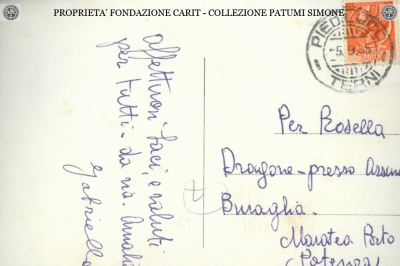 PROPRIETA' FONDAZIONE CARIT - COLLEZIONE PATUMI SIMONE
PIEDILUCO
-5.9.
TERNI
Affettuosi baci e saluti
per tutti - da noi. Amalia
Gabriella
Per Rosella
Dragone - presso
Buraglia.
Maratea Porto
(Potenza)